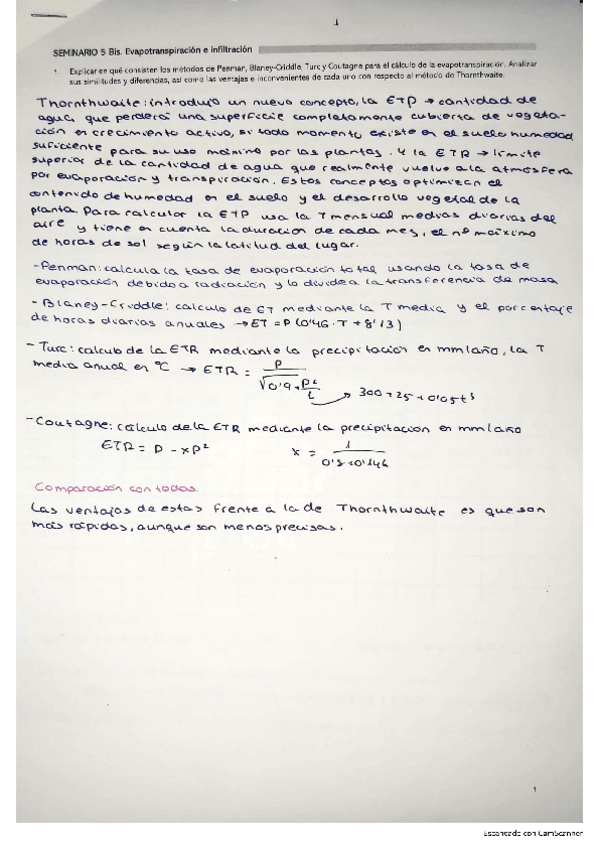 1
SEMINARIO 5 Bis. Evapotranspiración e infiltración
1. Explicar en qué consisten los métodos de Penman, Blaney-Criddle, Turc y Coutagne para el cálculo de la evapotranspiración. Analizar
sus similitudes y diferencias, así como las ventajas e inconvenientes de cada uno con respecto al método de Thornthwaite.
Thornthwaite: introdujo un nuevo concepto, la ETP → cantidad de
agua, que perderá una superficie completamente cubierta de vegeta-
ción en crecimiento activo, si todo momento existe en el suelo humedad
suficiente para su uso máximo por las plantas. Y la ETR → límite
superior de la cantidad de agua que realmente vuelve a la atmósfera
por evaporación y transpiración. Estos conceptos optimizan el
contenido de humedad en el suelo y el desarrollo vegetal de la
planta. Para calcular la ETP usa la T mensual medias diarias del
aire y tiene en cuenta la duración de cada mes, el nº máximo
de horas de sol según la latitud del lugar.
- Penman: calcula la tasa de evaporación total usando la tasa de
evaporación debido a radiación y lo divide a la transferencia de masa
- Blaney-Criddle: calculo de ET mediante la T media y el porcentaje
de horas diarias anuales → ET = P (0'46 · T + 8'13)
- Turc: calculo de la ETR mediante la precipitacion en mm/año, la T
media anual en ºC → ETR = P / √0'9 + P²/L → 300 + 25 + 0'05t³
- Coutagne: cálculo de la ETR mediante la precipitación en mm/año
ETR = P - xP² x = 1 / 0'8+0'14t
Comparación con todas.
Las ventajas de estas frente a la de Thornthwaite es que son
más rápidas, aunque son menos precisas.
1
Escaneado con CamScanner